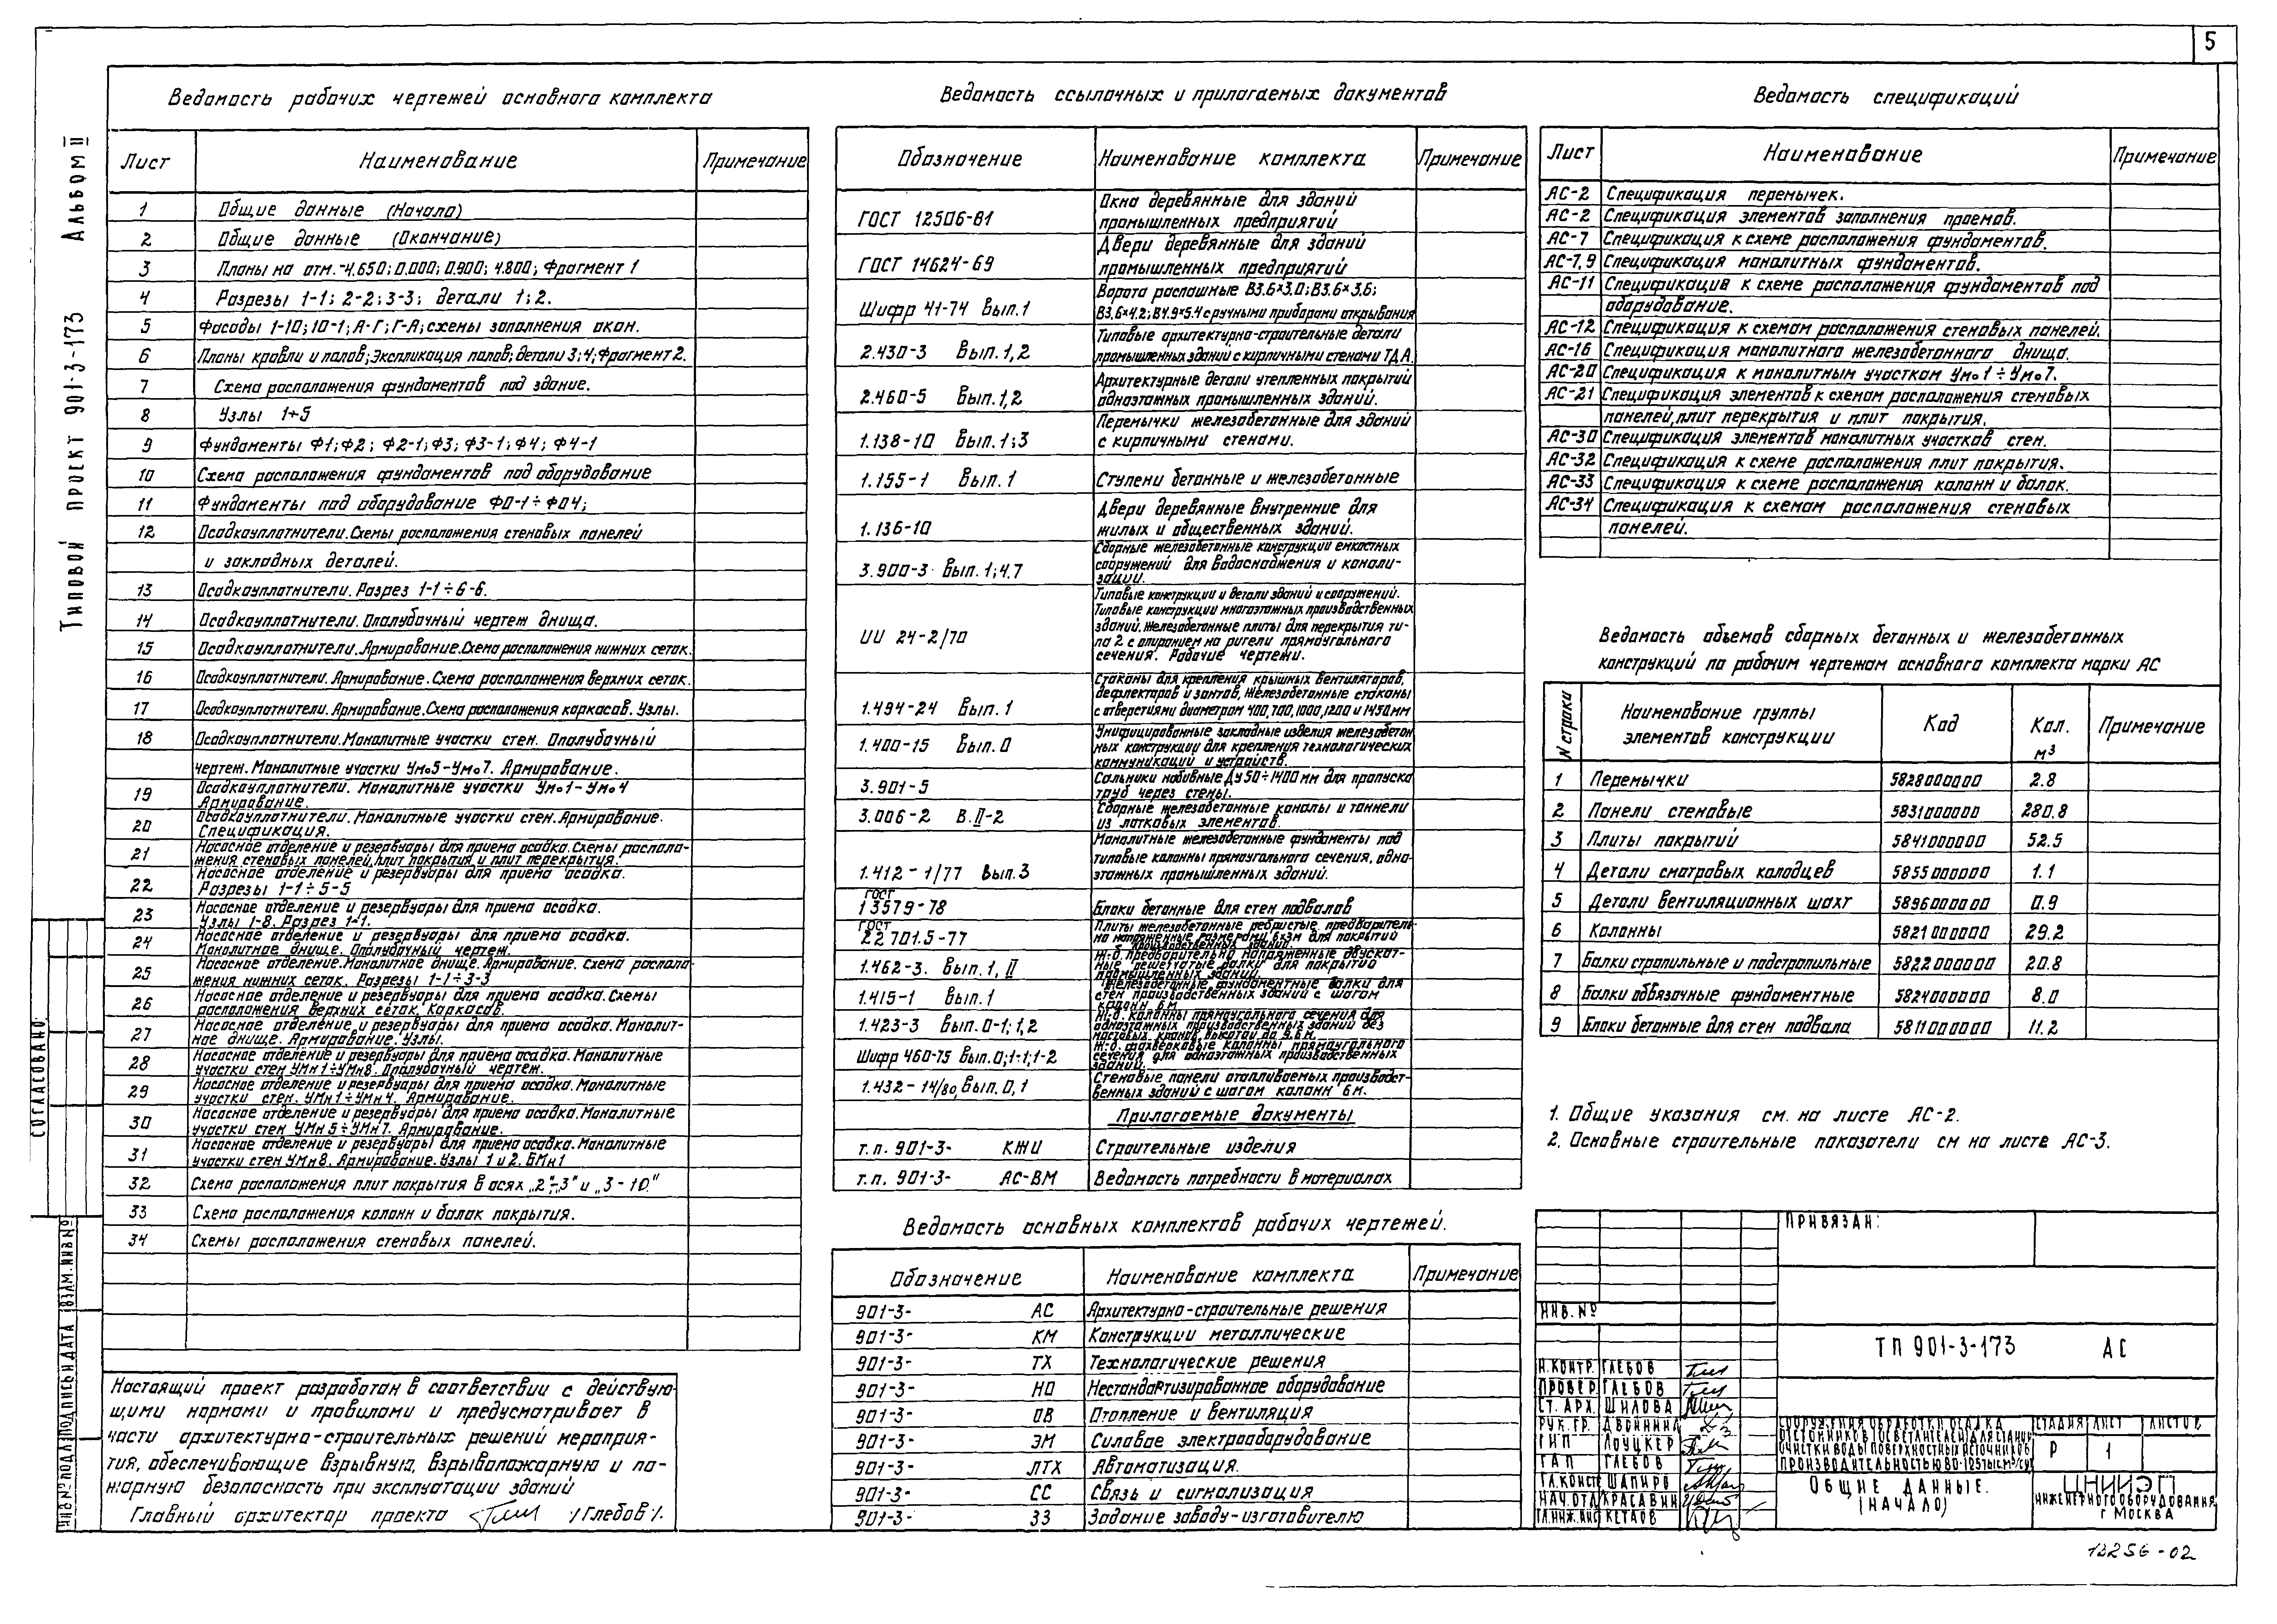 5
Альбом II
Типовой проект 901-3-173
Ведомость рабочих чертежей основного комплекта
Лист Наименование Примечание
1 Общие данные (Начало)
2 Общие данные (Окончание)
3 Планы на отм.-4.650; 0.000; 0.900; 4.800; Фрагмент 1
4 Разрезы 1-1; 2-2; 3-3; детали 1; 2.
5 Фасады 1-10; 10-1; А-Г; Г-А; схемы заполнения окон.
6 Планы кровли и полов; Экспликация полов; детали 3; 4; Фрагмент 2.
7 Схема расположения фундаментов под здание.
8 Узлы 1÷5
9 Фундаменты Ф1; Ф2; Ф2-1; Ф3; Ф3-1; Ф4; Ф4-1
10 Схема расположения фундаментов под оборудование
11 Фундаменты под оборудование ФО-1 ÷ ФО4;
12 Осадкоуплотнители. Схемы расположения стеновых панелей
и закладных деталей.
13 Осадкоуплотнители. Разрез 1-1 ÷ 6-6.
14 Осадкоуплотнители. Опалубочный чертеж днища.
15 Осадкоуплотнители. Армирование. Схема расположения нижних сеток.
16 Осадкоуплотнители. Армирование. Схема расположения верхних сеток.
17 Осадкоуплотнители. Армирование. Схема расположения каркасов. Узлы.
18 Осадкоуплотнители. Монолитные участки стен. Опалубочный
чертеж. Монолитные участки Умо5-Умо7. Армирование.
19 Осадкоуплотнители. Монолитные участки Умо1-Умо4
Армирование.
20 Осадкоуплотнители. Монолитные участки стен. Армирование.
Спецификация.
21 Насосное отделение и резервуары для приема осадка. Схемы располо-
жения стеновых панелей, плит покрытия и плит перекрытия.
22 Насосное отделение и резервуары для приема осадка.
Разрезы 1-1 ÷ 5-5
23 Насосное отделение и резервуары для приема осадка.
Узлы 1-8. Разрез 1-1.
24 Насосное отделение и резервуары для приема осадка.
Монолитное днище. Опалубочный чертеж.
25 Насосное отделение. Монолитное днище. Армирование. Схема располо-
жения нижних сеток. Разрезы 1-1 ÷ 3-3
26 Насосное отделение и резервуары для приема осадка. Схемы
расположения верхних сеток, Каркасов.
27 Насосное отделение и резервуары для приема осадка. Монолит-
ное днище. Армирование. Узлы.
28 Насосное отделение и резервуары для приема осадка. Монолитные
участки стен УМн1÷УМн8. Опалубочный чертеж.
29 Насосное отделение и резервуары для приема осадка. Монолитные
участки стен. УМн1÷УМн4. Армирование.
30 Насосное отделение и резервуары для приема осадка. Монолитные
участки стен УМн5÷УМн7. Армирование.
31 Насосное отделение и резервуары для приема осадка. Монолитные
участки стен УМн8. Армирование. Узлы 1 и 2. БМн1
32 Схема расположения плит покрытия в осях „2"÷„3" и „3-10."
33 Схема расположения колонн и балок покрытия.
34 Схемы расположения стеновых панелей.
Настоящий проект разработан в соответствии с действую-
щими нормами и правилами и предусматривает в
части архитектурно-строительных решений мероприя-
тия, обеспечивающие взрывную, взрывопожарную и по-
жарную безопасность при эксплуатации зданий
Главный архитектор проекта /Глебов/.
Ведомость ссылочных и прилагаемых документов
Обозначение Наименование комплекта Примечание
ГОСТ 12506-81 Окна деревянные для зданий
промышленных предприятий
ГОСТ 14624-69 Двери деревянные для зданий
промышленных предприятий
Шифр 41-74 Вып.1 Ворота распашные В3.6×3.0; В3.6×3.6;
В3.6×4.2; В4.9×5.4 с ручными приборами открывания
2.430-3 Вып.1,2 Типовые архитектурно-строительные детали
промышленных зданий с кирпичными стенами ТДА.
2.460-5 Вып.1,2 Архитектурные детали утепленных покрытий
одноэтажных промышленных зданий.
1.138-10 Вып.1;3 Перемычки железобетонные для зданий
с кирпичными стенами.
1.155-1 Вып.1 Ступени бетонные и железобетонные
1.136-10 Двери деревянные внутренние для
жилых и общественных зданий.
3.900-3 Вып.1;4.7 Сборные железобетонные конструкции емкостных
сооружений для водоснабжения и канали-
зации.
ИИ 24-2/70 Типовые конструкции и детали зданий и сооружений.
Типовые конструкции многоэтажных производственных
зданий. Железобетонные плиты для перекрытия ти-
па 2 с опиранием на ригели прямоугольного
сечения. Рабочие чертежи.
1.494-24 Вып.1 Стаканы для крепления крышных вентиляторов,
дефлекторов и зонтов, Железобетонные стаканы
с отверстиями диаметром 400,700,1000,1200 и 1450мм
1.400-15 Вып.0 Унифицированные закладные изделия железобетон
ных конструкции для крепления технологических
коммуникаций и устройств.
3.901-5 Сальники набивные Ду50÷1400мм для пропуска
труб через стены.
3.006-2 В.II-2 Сборные железобетонные каналы и тоннели
из лотковых элементов.
1.412-1/77 Вып.3 Монолитные железобетонные фундаменты под
типовые колонны прямоугольного сечения, одно-
этажных промышленных зданий.
ГОСТ
13579-78 Блоки бетонные для стен подвалов
ГОСТ
22701.5-77 Плиты железобетонные ребристые предваритель-
но напряженные размерами 6х3м для покрытий
производственных зданий.
1.462-3. Вып.1, II Ж-б. предварительно напряженные двускат-
ные решетчатые балки для покрытий
промышленных зданий.
1.415-1 Вып.1 Железобетонные фундаментные балки для
стен производственных зданий с шагом
колонн 6м
1.423-3 Вып.0-1;1,2 Ж.-б. колонны прямоугольного сечения для
одноэтажных производственных зданий без
мостовых кранов, высотой до 9.6м.
Шифр 460-75 Вып.0;1-1;1-2 Ж-б. фахверковые колонны прямоугольного
сечения для одноэтажных производственных
зданий.
1.432-14/80, Вып.0,1 Стеновые панели отапливаемых производст-
венных зданий с шагом колонн 6м.
Прилагаемые документы
т.п. 901-3- КЖИ Строительные изделия
т.п. 901-3- АС-ВМ Ведомость потребности в материалах
Ведомость основных комплектов рабочих чертежей.
Обозначение Наименование комплекта Примечание
901-3- АС Архитектурно-строительные решения
901-3- КМ Конструкции металлические
901-3- ТХ Технологические решения
901-3- НО Нестандартизированное оборудование
901-3- ОВ Отопление и вентиляция
901-3- ЭМ Силовое электрооборудование
901-3- ЛТХ Автоматизация.
901-3- СС Связь и сигнализация
901-3- ЗЗ Задание заводу-изготовителю
Ведомость спецификаций
Лист Наименование Примечание
АС-2 Спецификация перемычек.
АС-2 Спецификация элементов заполнения проемов.
АС-7 Спецификация к схеме расположения фундаментов.
АС-7,9 Спецификация монолитных фундаментов.
АС-11 Спецификация к схеме расположения фундаментов под
оборудование.
АС-12 Спецификация к схемам расположения стеновых панелей.
АС-16 Спецификация монолитного железобетонного днища.
АС-20 Спецификация к монолитным участкам Умо1÷Умо7.
АС-21 Спецификация элементов к схемам расположения стеновых
панелей, плит перекрытия и плит покрытия.
АС-30 Спецификация элементов монолитных участков стен.
АС-32 Спецификация к схеме расположения плит покрытия.
АС-33 Спецификация к схеме расположения колонн и балок.
АС-34 Спецификация к схемам расположения стеновых
панелей.
Ведомость объемов сборных бетонных и железобетонных
конструкций по рабочим чертежам основного комплекта марки АС
N строки Наименование группы элементов конструкции Код Кол. м³ Примечание
1 Перемычки 5828000000 2.8
2 Панели стеновые 5831000000 280.8
3 Плиты покрытий 5841000000 52.5
4 Детали смотровых колодцев 5855000000 1.1
5 Детали вентиляционных шахт 5896000000 0.9
6 Колонны 5821000000 29.2
7 Балки стропильные и подстропильные 5822000000 20.8
8 Балки обвязочные фундаментные 5824000000 8.0
9 Блоки бетонные для стен подвала 5811000000 11.2
1. Общие указания см. на листе АС-2.
2. Основные строительные показатели см на листе АС-3.
Привязан:
Инв.№
ТП 901-3-173 АС
Н.контр. Глебов
Провер. Глебов
Ст. арх. Шилова
Рук. гр. Двойнина
ГИП Лоуцкер
ГАП Глебов
Гл.конст Шапиро
Нач.отд Красавин
Гл.инж.инс Кетаов
Сооружения обработки осадка
отстойников (осветлителей) для станций
очистки воды поверхностных источников
производительностью 80-125тыс.м³/сут
Стадия Лист Листов
Р 1
Общие данные.
(Начало)
ЦНИИЭП
инженерного оборудования
г Москва
Согласовано:
Инв № подл Подпись и дата Взам. инв №
18256-02